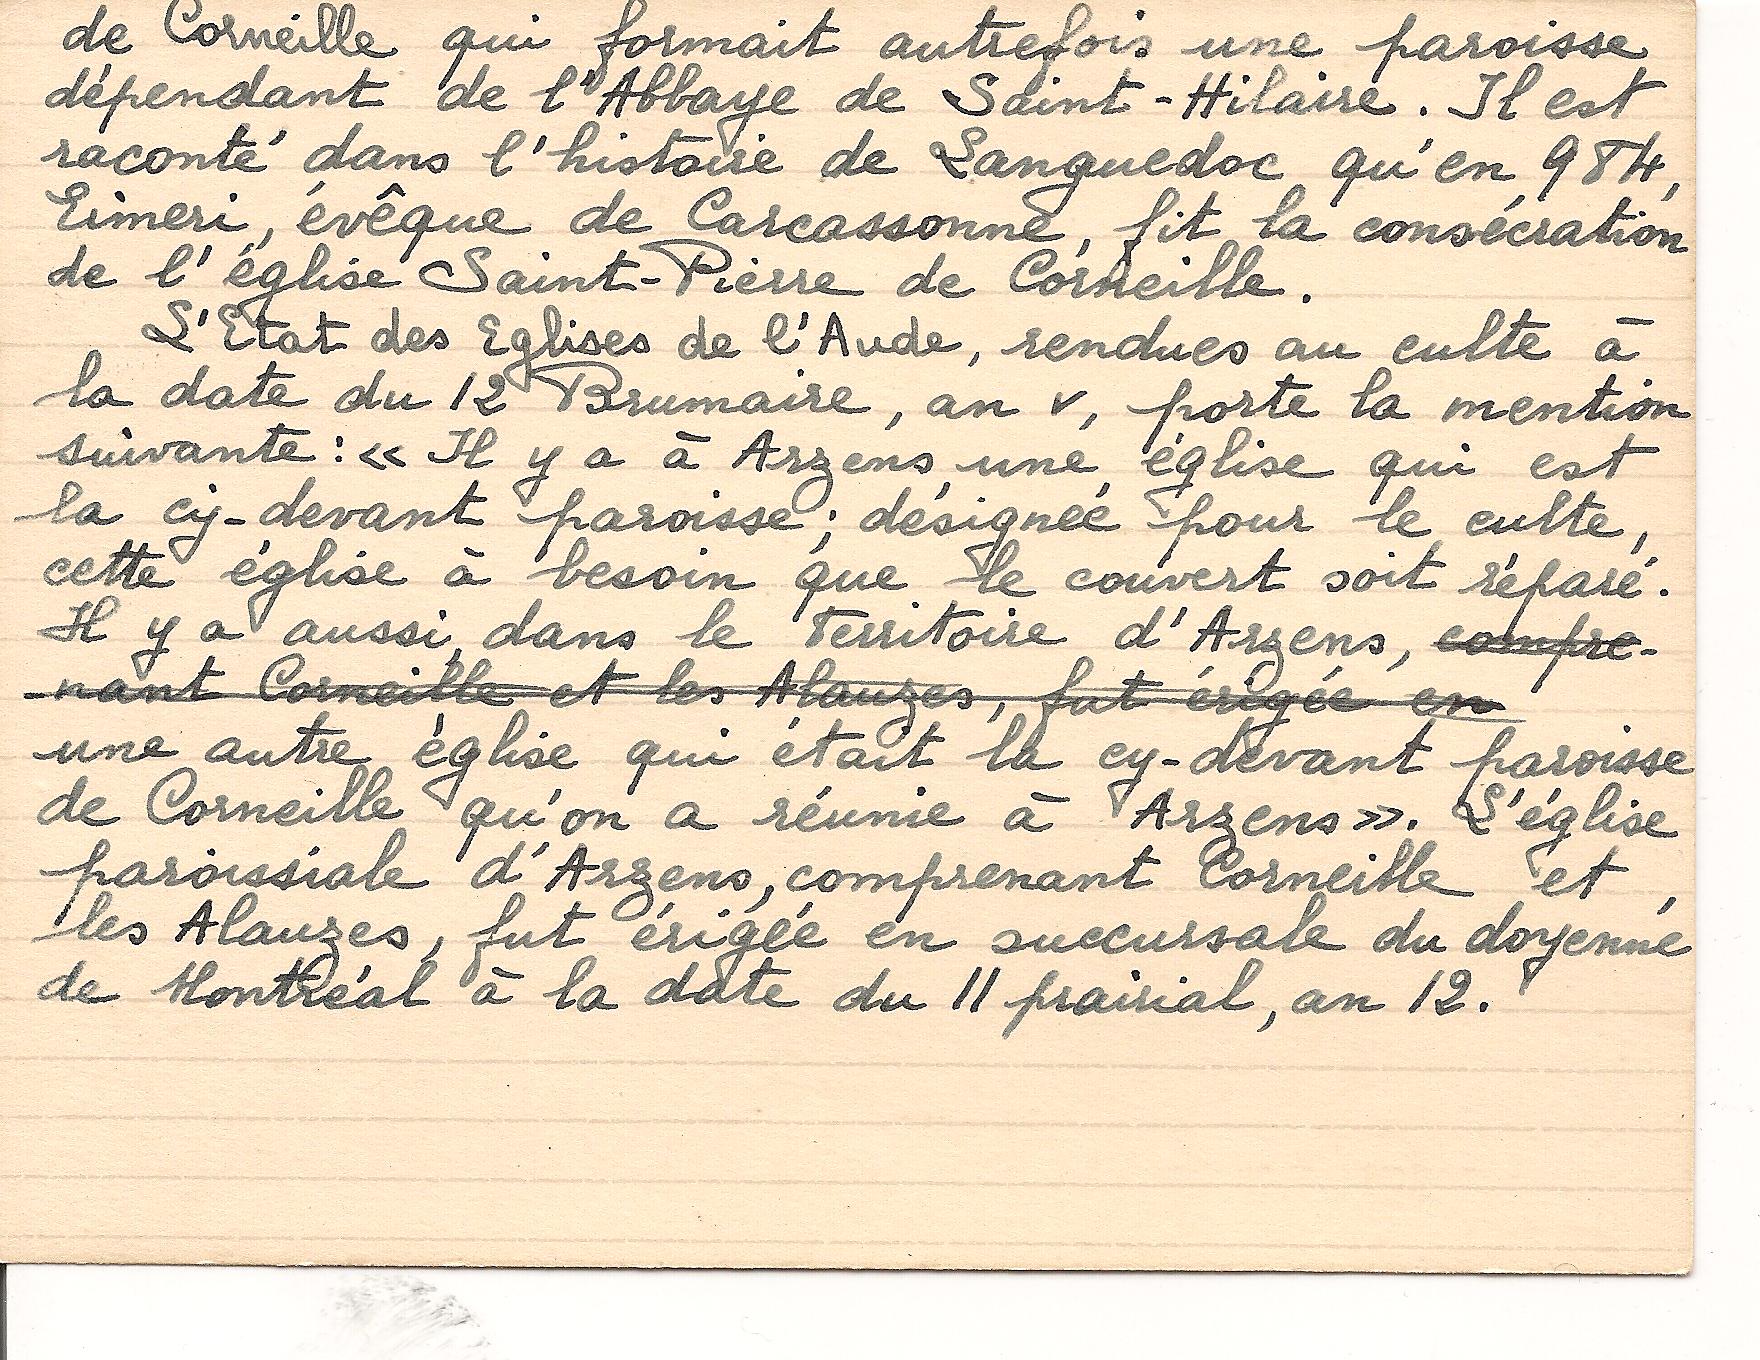 de Corneille qui formait autrefois une paroisse
dépendant de l'Abbaye de Saint-Hilaire. Il est
raconté dans l'histoire de Languedoc qu'en 984,
Eimeri, évêque de Carcassonne, fit la consécration
de l'église Saint-Pierre de Corneille.
L'Etat des Eglises de l'Aude, rendues au culte à
la date du 12 Brumaire, an V, porte la mention
suivante : « Il y a à Arzens une église qui est
la cy-devant paroisse ; désignée pour le culte,
cette église à besoin que le couvert soit réparé.
Il y a aussi dans le territoire d'Arzens, compre-
nant Corneille et les Alauzes, fut érigée en
une autre église qui était la cy-devant paroisse
de Corneille qu'on a réunie à Arzens ». L'église
paroissiale d'Arzens, comprenant Corneille et
les Alauzes, fut érigée en succursale du doyenné
de Montréal à la date du 11 prairial, an 12.